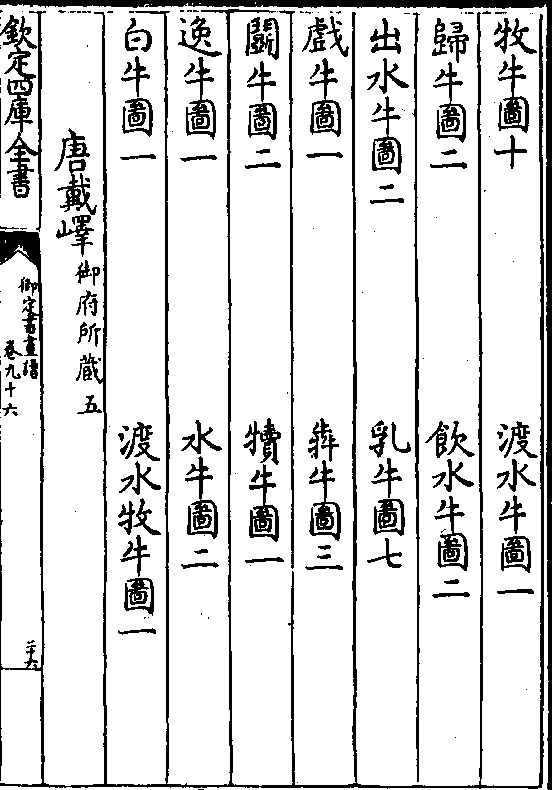 牧牛圖十　渡水牛圖一
歸牛圖二　飲水牛圖二
出水牛圖二　乳牛圖七
戲牛圖一　犇牛圖三
鬭牛圖二　犢牛圖一
逸牛圖一　水牛圖二
白牛圖一　渡水牧牛圖一
唐戴嶧御府所藏五
欽定四庫全書
御定書畫譜
卷九十六